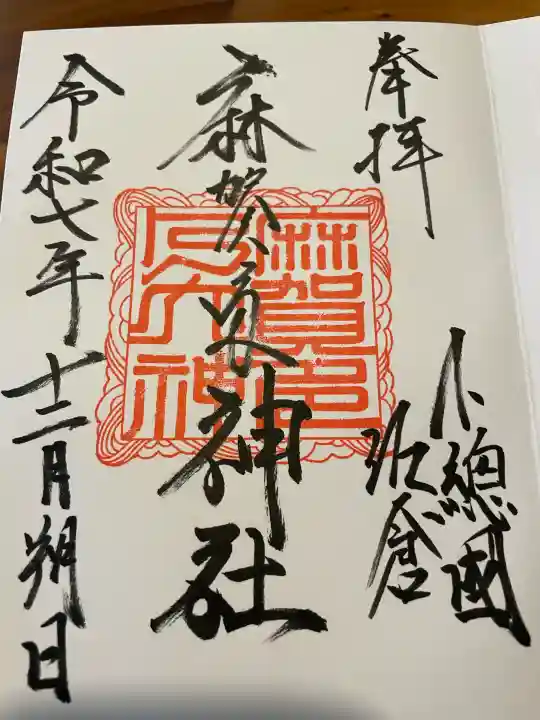 奉拝
下總國
佐倉
麻賀多神社
麻賀多
大神
令和七年十二月朔日